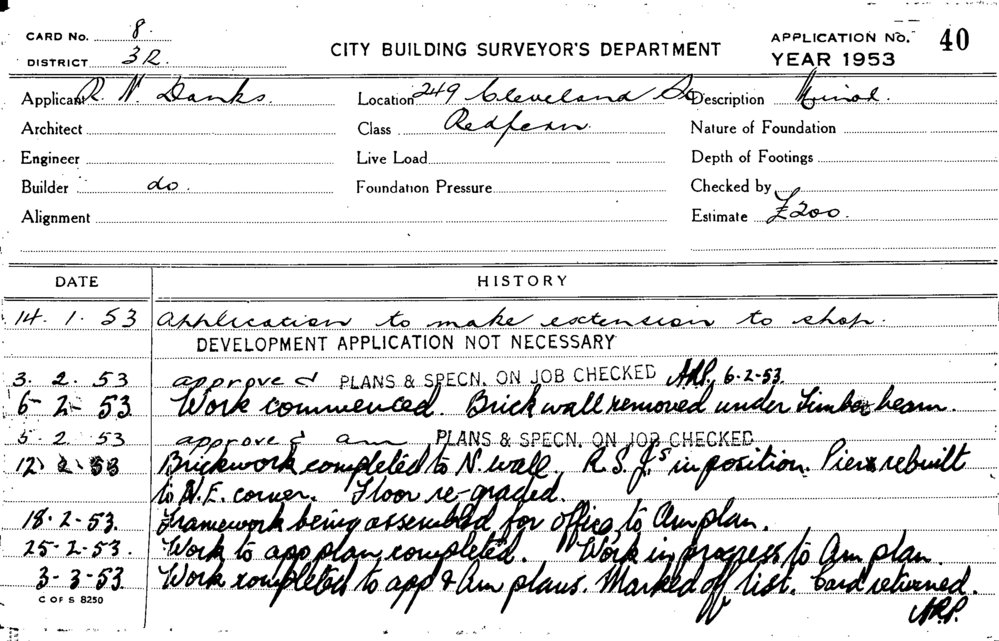 CARD No. 8.
DISTRICT 3R.
CITY BUILDING SURVEYOR'S DEPARTMENT
APPLICATION No. 40
YEAR 1953
Applicant R. N. Danks.
Location 249 Cleveland St
Description Minor.
Architect
Class Redfern.
Nature of Foundation
Engineer
Live Load
Depth of Footings
Builder do.
Foundation Pressure
Checked by
Alignment
Estimate £200.
DATE HISTORY
14. 1. 53 Application to make extension to shop.
DEVELOPMENT APPLICATION NOT NECESSARY
3. 2. 53 approved PLANS & SPECN. ON JOB CHECKED 6-2-53.
6-2-53. Work commenced. Brick wall removed under Timber beam.
5. 2. 53 approved am PLANS & SPECN. ON JOB CHECKED
12 2 53 Brickwork completed to N. wall. R.S.J.s in position. Pier rebuilt
to N.E. corner. Floor re-graded.
18-2-53. Framework being assembled for office to Am plan.
25-2-53. Work to app plan completed. Work in progress to Am plan.
3-3-53. Work completed to app & Am plans. Marked off list. Card returned.
C OF S 8250